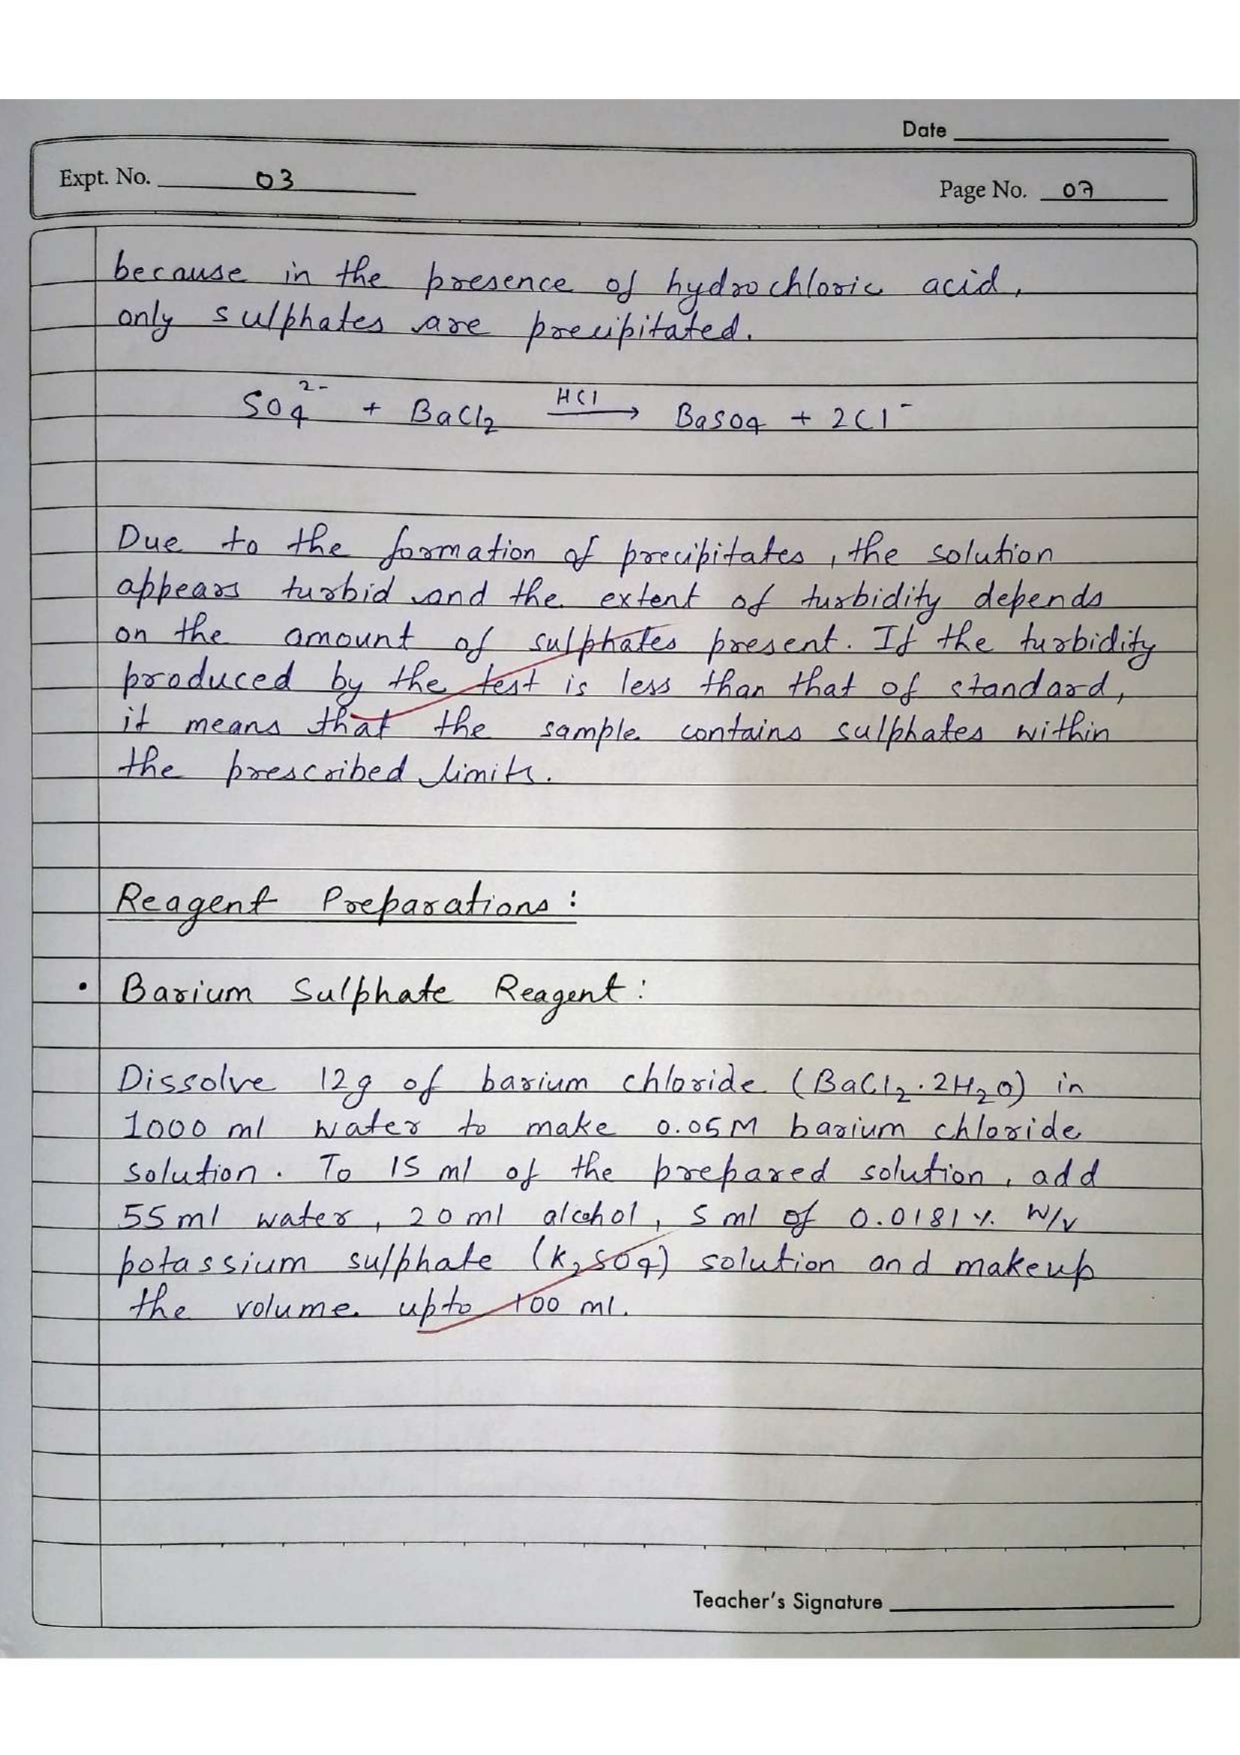 Date
Expt. No. 03
Page No. 07
because in the presence of hydrochloric acid,
only sulphates are precipitated.
SO4²⁻ + BaCl2 —HCl→ BaSO4 + 2Cl⁻
Due to the formation of precipitates, the solution
appears turbid and the extent of turbidity depends
on the amount of sulphates present. If the turbidity
produced by the test is less than that of standard,
it means that the sample contains sulphates within
the prescribed limits.
Reagent Preparations:
• Barium Sulphate Reagent:
Dissolve 12g of barium chloride (BaCl2·2H2O) in
1000 ml water to make 0.05M barium chloride
solution. To 15 ml of the prepared solution, add
55 ml water, 20 ml alcohol, 5 ml of 0.0181% w/v
potassium sulphate (K2SO4) solution and makeup
the volume upto 100 ml.
Teacher's Signature